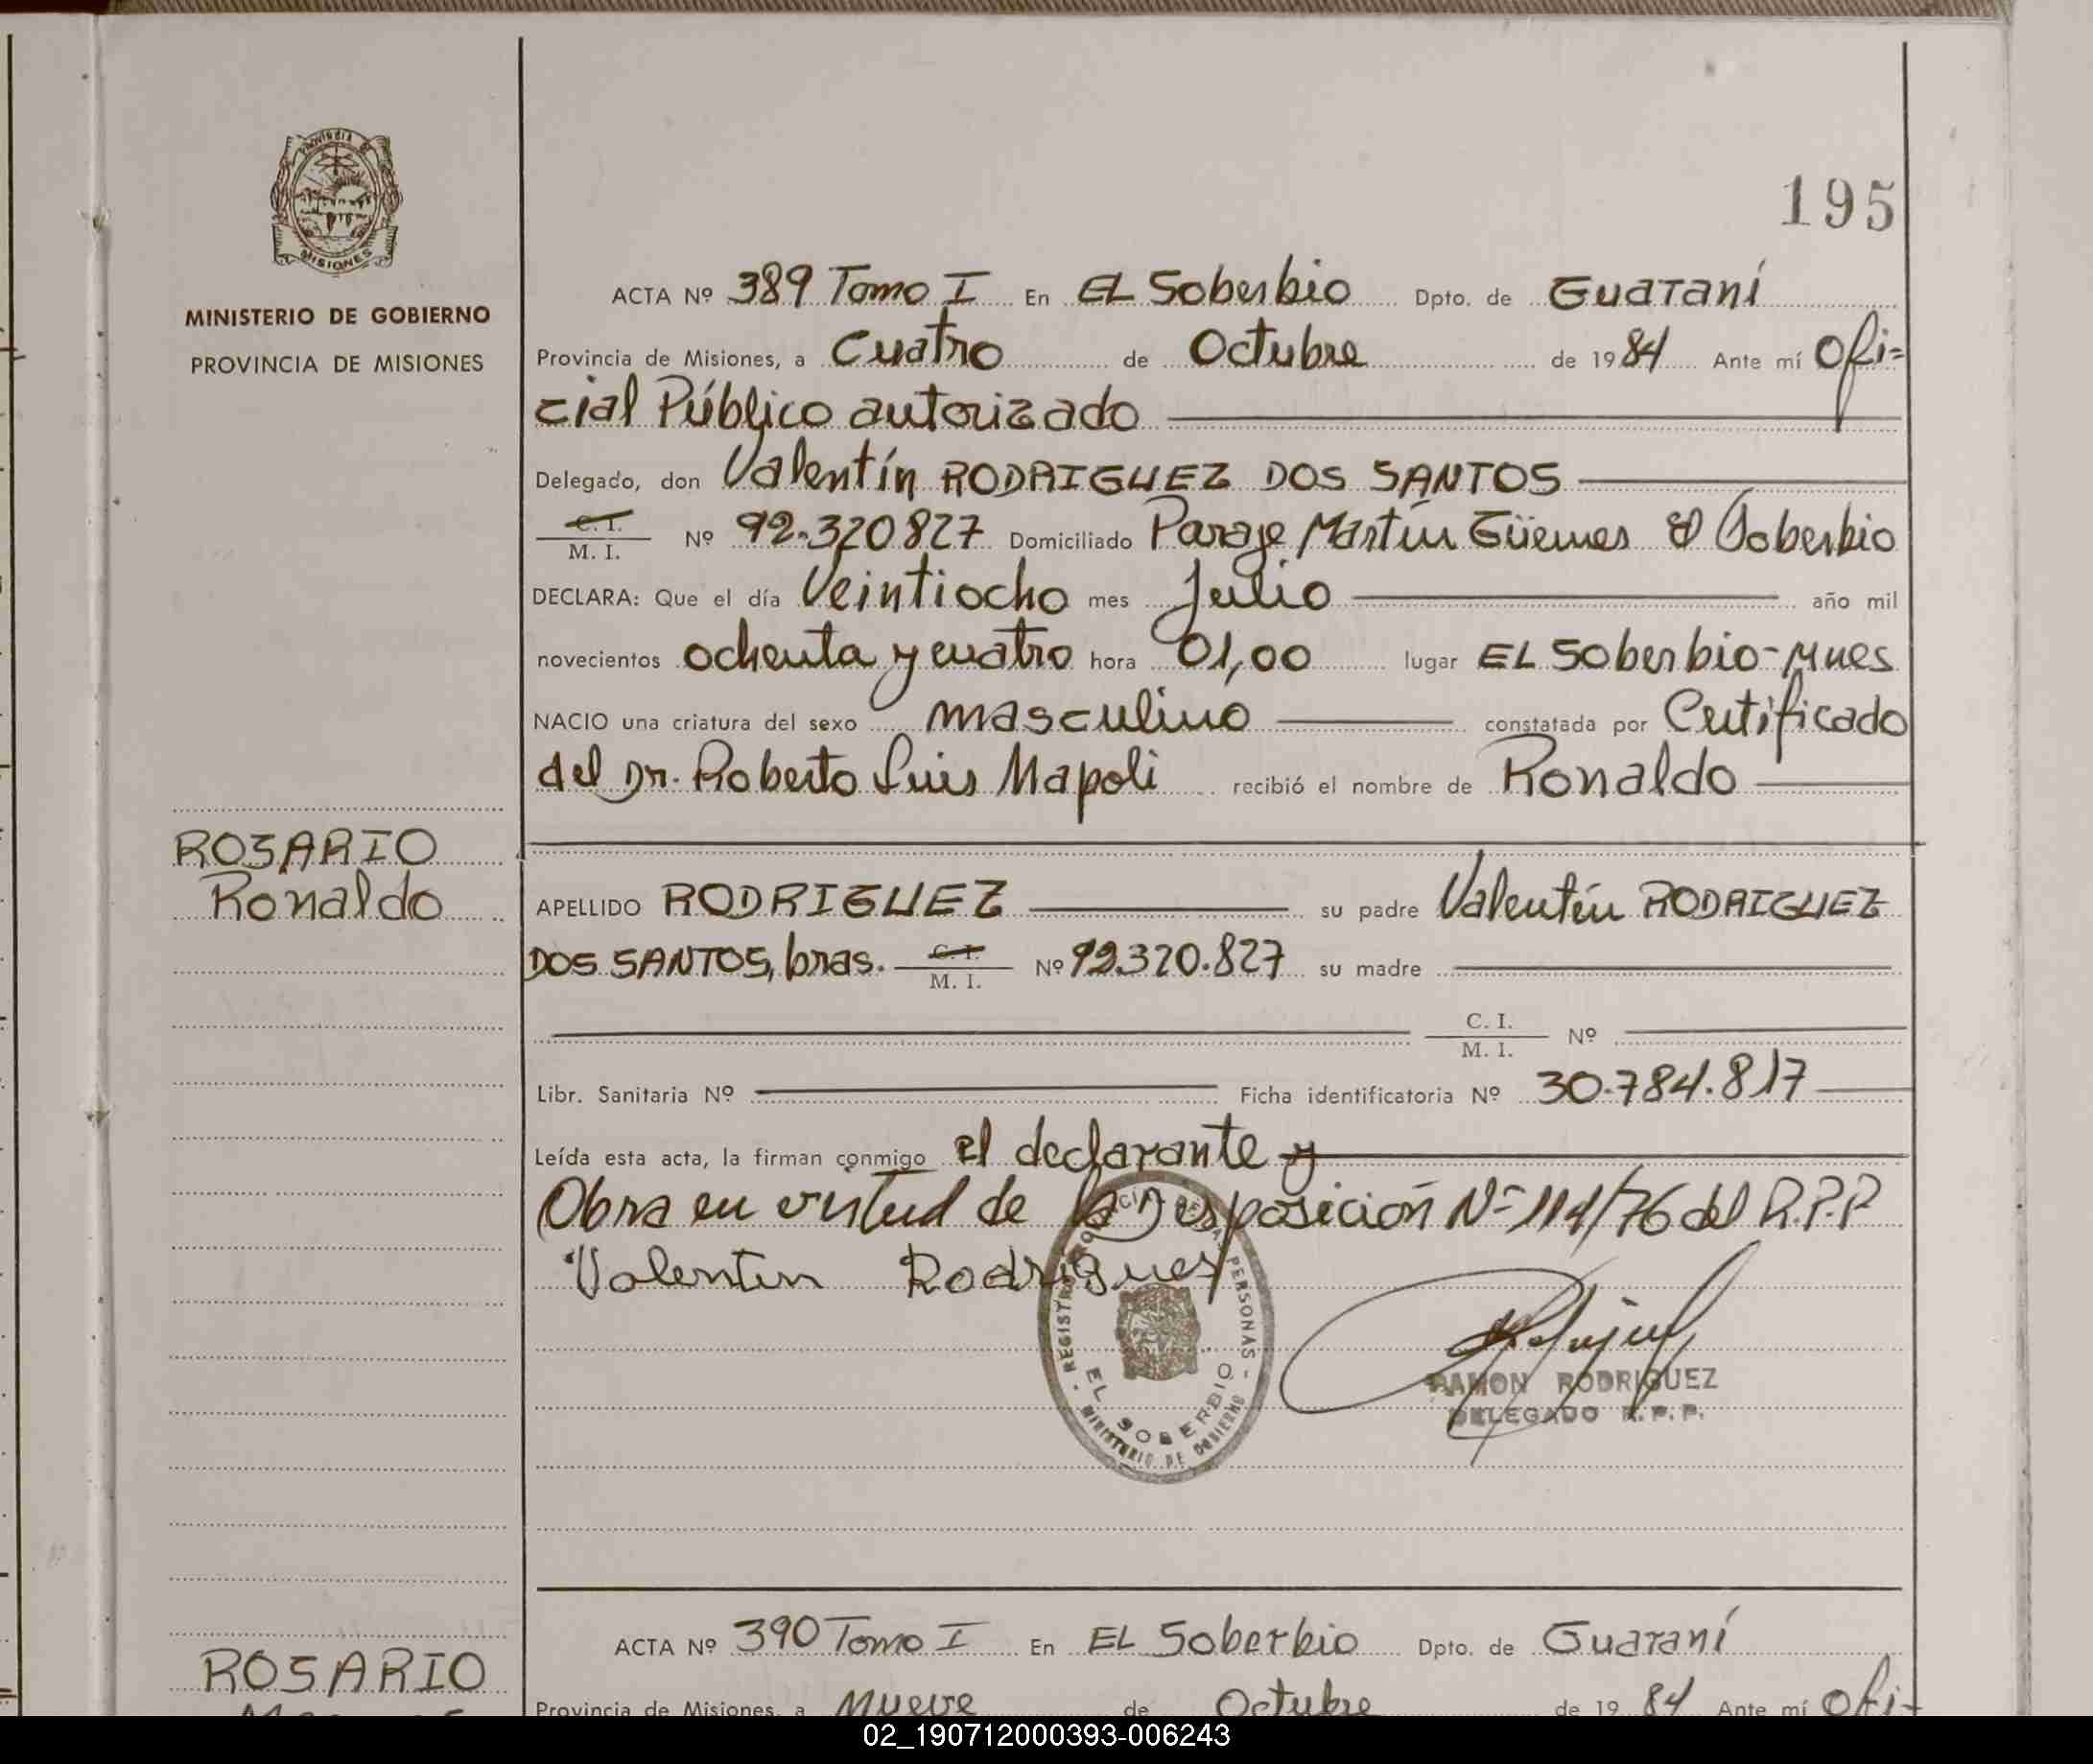 PROVINCIA DE
MISIONES
MINISTERIO DE GOBIERNO
PROVINCIA DE MISIONES
195
ACTA Nº 389 Tomo I En EL Soberbio Dpto. de Guaraní
Provincia de Misiones, a Cuatro de Octubre de 19 84 Ante mí Ofi=
cial Público autorizado
Delegado, don Valentín RODRIGUEZ DOS SANTOS
C. I.
M. I. Nº 92.320827 Domiciliado Paraje Martín Güemes El Soberbio
DECLARA: Que el día Veintiocho mes Julio año mil
novecientos ochenta y cuatro hora 01,00 lugar EL Soberbio-Mnes
NACIO una criatura del sexo masculino constatada por Certificado
del Dr. Roberto Luis Napoli recibió el nombre de Ronaldo
ROSARIO
Ronaldo
APELLIDO RODRIGUEZ su padre Valentín RODRIGUEZ
DOS SANTOS, bras. C. I.
M. I. Nº 92.320.827 su madre
C. I.
M. I. Nº
Libr. Sanitaria Nº Ficha identificatoria Nº 30.784.817
Leída esta acta, la firman conmigo el declarante y
Obra en virtud de la Disposición Nº 114/76 del R.P.P
Valentin Rodrigues
REGISTRO PROVINCIAL DE LAS PERSONAS
EL SOBERBIO
MINISTERIO DE GOBIERNO
RAMON RODRIGUEZ
DELEGADO R.P.P.
ACTA Nº 390 Tomo I En EL Soberbio Dpto. de Guaraní
ROSARIO
Provincia de Misiones, a Nueve de Octubre de 19 84 Ante mí Ofi-
02_190712000393-006243